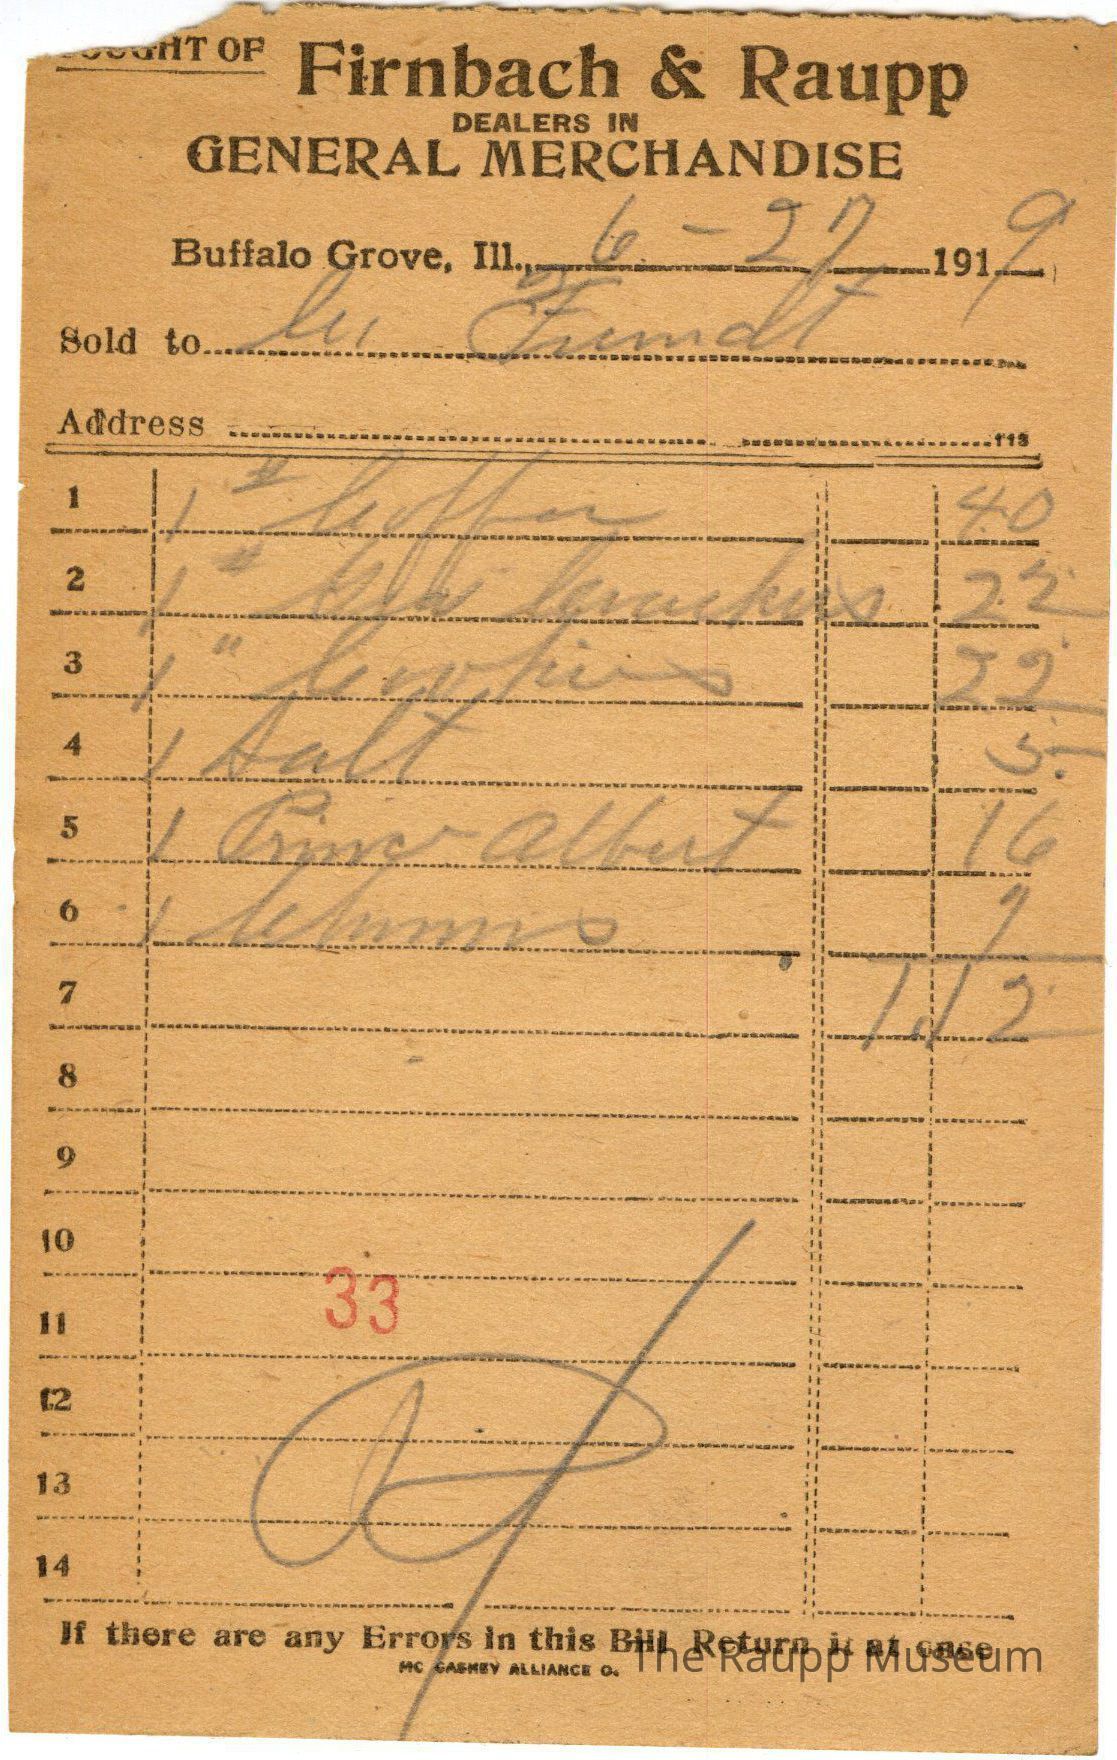 BOUGHT OF Firnbach & Raupp
DEALERS IN
GENERAL MERCHANDISE
Buffalo Grove, Ill., 6-27 1919
Sold to
Address 113
1 1 # Coffee 40
2 1 " Crackers 22
3 1 " Cookies 22
4 1 Salt 5
5 1 Prince Albert 16
6 1 7
7 1.12
8
9
10
33
11
12
13
14
If there are any Errors in this Bill Return it at once
MC CASKEY ALLIANCE O.
The Raupp Museum